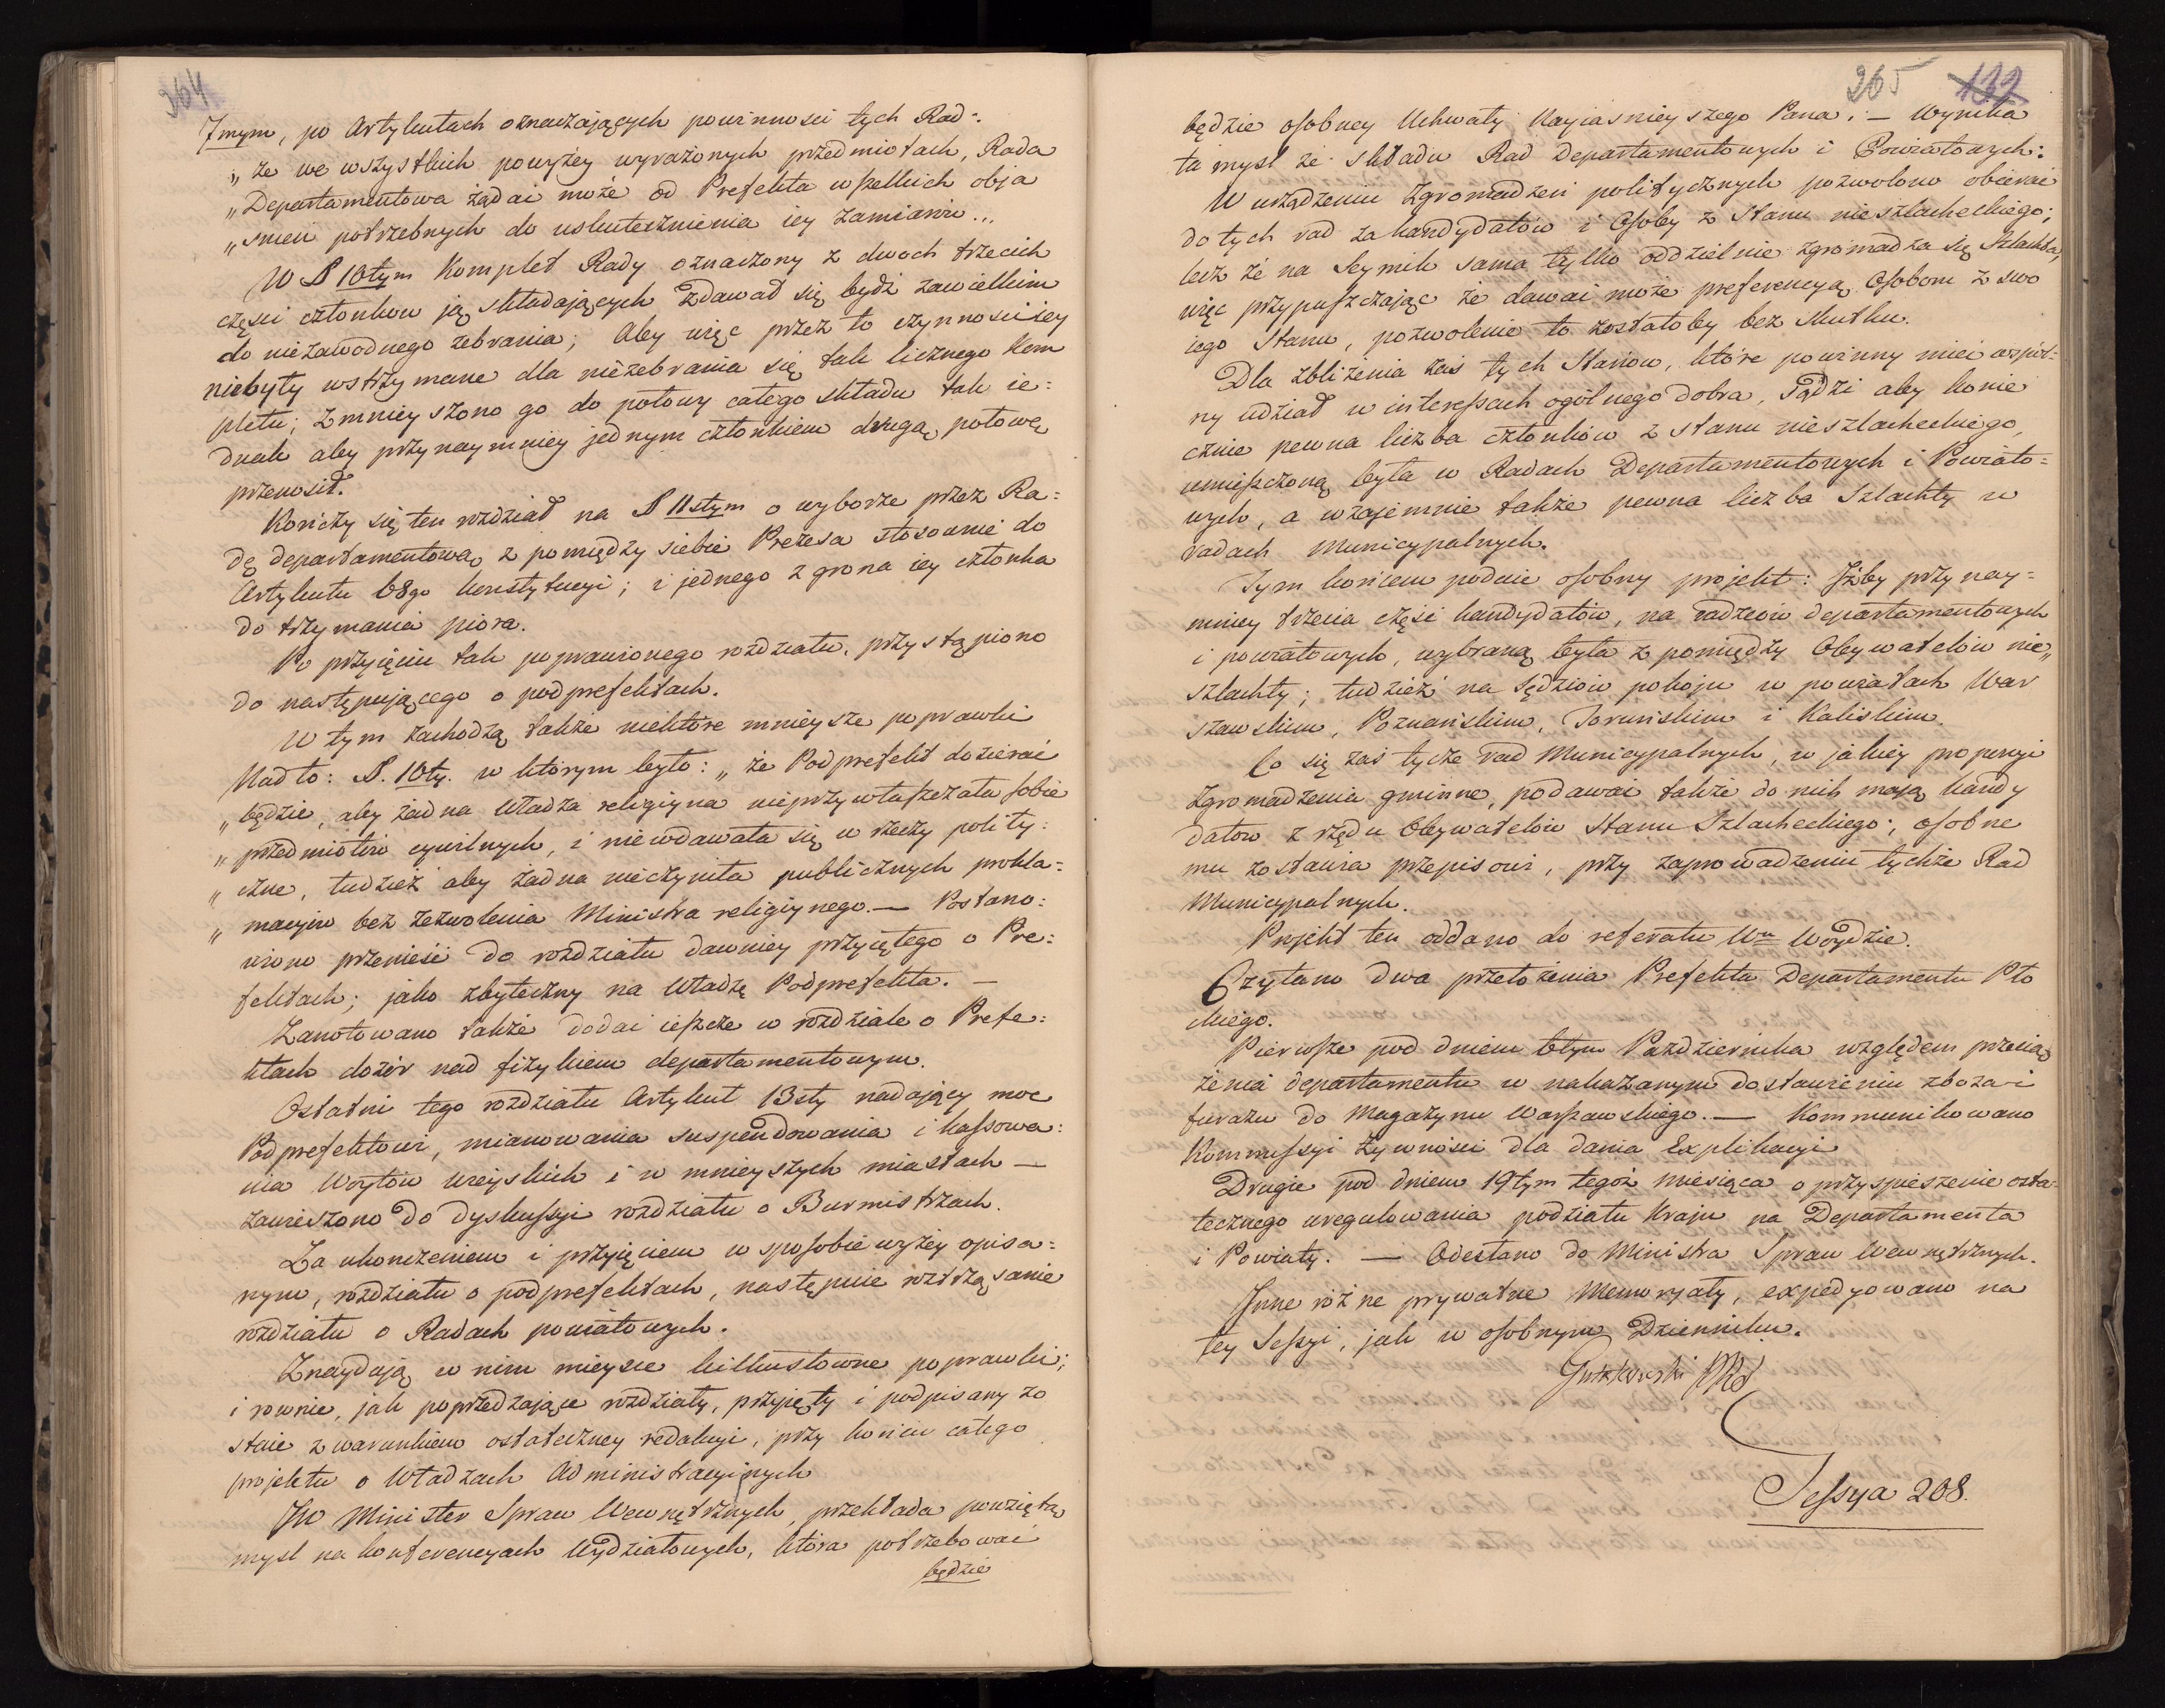 364
7mym, po Artykułach oznaczających powinności tych Rad:
„ że we wszystkich powyżey wyrażonych przedmiotach, Rada
„ Departamentowa żądać może od Prefekta wszelkich obja
„ śnień potrzebnych do uskutecznienia iey zamiarów...
W § 10tym Komplet Rady oznaczony z dwoch trzecich
części członkow ją składających zdawał się bydź zawielkim
do niezawodnego zebrania; Aby więc przez to czynności iey
niebyły wstrzymane dla niezebrania się tak licznego Kom
pletu; zmnieyszono go do połowy całego składu tak ie=
dnak aby przynaymniey jednym członkiem drugą połowę
przenosił.
Kończy się ten rozdział na § 11stym o wyborze przez Ra=
dę departamentową z pomiędzy siebie Prezesa stosownie do
Artykułu 68go konstytucyi; i jednego z grona iey członka
do trzymania pióra.
Po przyięciu tak poprawionego rozdziału, przystąpiono
do następującego o podprefektach.
W tym zachodzą także niektóre mnieysze poprawki
Nadto: §. 10ty. w którym było: „ że Podprefekt dozierać
„ będzie, aby żadna Władza religiyna nieprzywłaszczała sobie
„ przedmiotów cywilnych, i niewdawała się w rzeczy polity:
„ czne, tudzież aby żadna nieczyniła publicznych prokla=
„ macyiw bez zezwolenia Ministra religiynego. — Postano:
wiono przenieść do rozdziału dawniey przyiętego o Pre=
fektach; jako zbyteczny na Władzę Podprefekta. —
Zanotowano także dodać ieszcze w rozdziale o Prefe=
ktach dozór nad fizykiem departamentowym.
Ostatni tego rozdziału Artykuł 13sty nadający moc
Podprefektowi, mianowania suspendowania i kassowa:
nia Woytów wieyskich i w mnieyszych miastach —
zawieszono do dyskussyi rozdziału o Burmistrzach.
Za ukończeniem i przyięciem w sposobie wyżey opisa=
nym, rozdziału o podprefektach, następuie roztrząsanie
rozdziału o Radach powiatowych.
Znaydują w nim mieysce kilkusłowne poprawki;
i rownie, jak poprzedzające rozdziały, przyięty i podpisany zo
staie z warunkiem ostateczney redakcyi, przy końcu całego
projektu o Władzach Administracyinych
JW Minister Spraw Wewnętrznych, przekłada powziętą
mysl na konferencyach Wydziałowych, która potrzebować
będzie
265 132
będzie osobney Uchwały Nayiasnieyszego Pana. — Wynika
ta mysl ze składu Rad Departamentowych i Powiatowych:
W urządzeniu Zgromadzeń politycznych pozwolono obierać
do tych rad za kandydatów i Osoby z Stanu nieszlacheckiego;
lecz że na Seymik sama tylko oddzielnie zgromadza się Szlachta,
więc przypuszczając że dawać może preferencyą Osobom z swo
iego Stanu, pozwolenie to zostałoby bez skutku.
Dla zbliżenia zaś tych Stanow, które powinny mieć wspól=
ny udział w interessach ogólnego dobra, sądzi aby konie
cznie pewna liczba członków z stanu nieszlacheckiego,
umieszczoną była w Radach Departamentowych i Powiato=
wych, a wzajemnie także pewna liczba Szlachty w
radach Municypalnych.
Tym końcem podaie osobny projekt: Iżby przynay=
mniey trzecia część kandydatów, na radzców departamentowych
i powiatowych, wybraną była z pomiędzy Obywatelów nie„
szlachty; tudzież na sędziów pokoju w powiatach War
szawskim, Poznańskim, Toruńskim i Kaliskim.
Co się zaś tycze rad Municypalnych, w jakiey propencyi
zgromadzenia gminne, podawać także do nich mają kandy
datow z rzędu Obywatelów Stanu Szlacheckiego; osobne
mu zostawia przepisowi, przy zaprowadzeniu tychże Rad
Municypalnych.
Projekt ten oddano do referatu Wu Woydzie.
Czytano dwa przełożenia Prefekta Departamentu Pło
ckiego.
Pierwsze pod dniem 6tym Października względem przecią
żenia departamentu w nakazanym dostawieniu zboża i
furażu do Magazynu Warszawskiego. — Kommunikowano
Kommissyi Żywności dla dania Explikacyi
Drugie pod dniem 19tym tegoż miesiąca o przyspieszenie osta=
tecznego uregulowania podziału Kraju na Departamenta
i Powiaty. — Odesłano do Ministra Spraw Wewnętrznych.
Inne różne prywatne Memoryały, expedyowano na
tey Sessyi, jak w osobnym Dzienniku.
Gutakowski
Sessya 208.